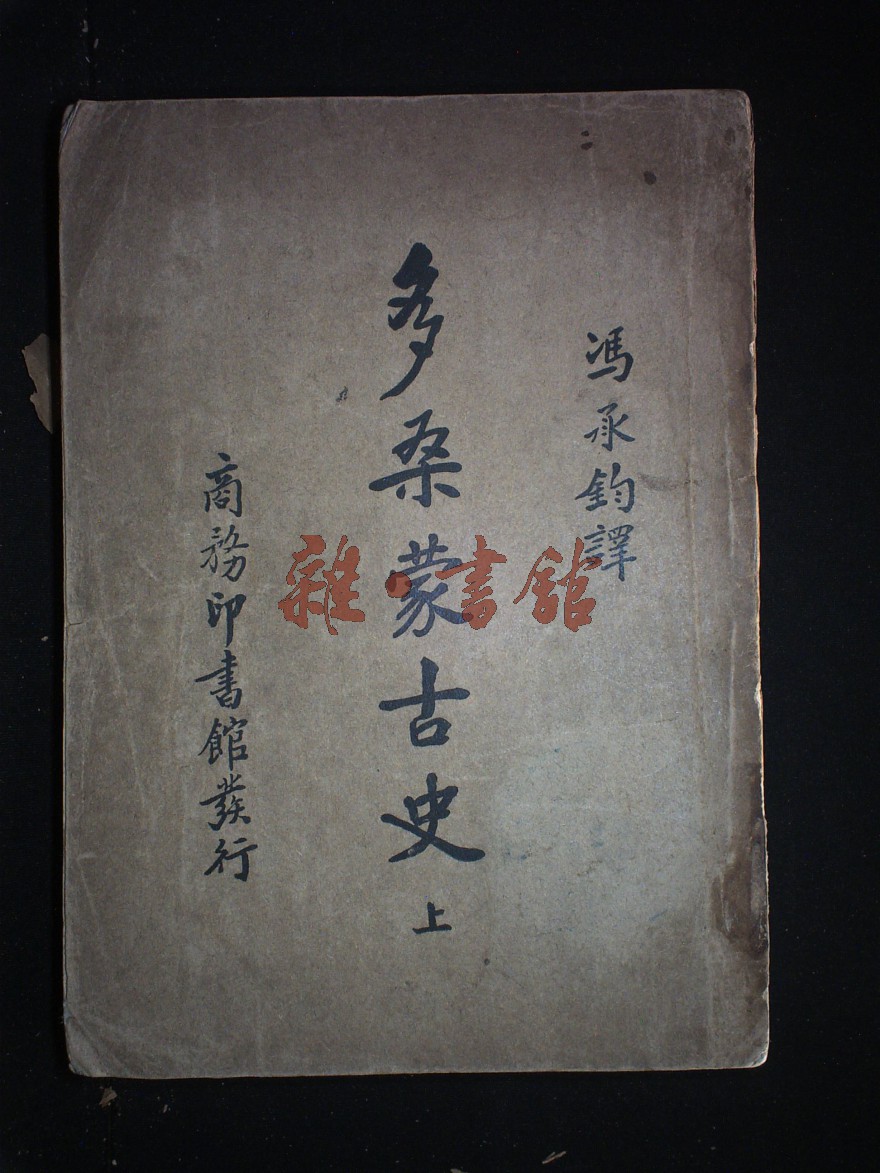 馮承鈞譯
多桑蒙古史
上
商務印書館發行
雜·書館